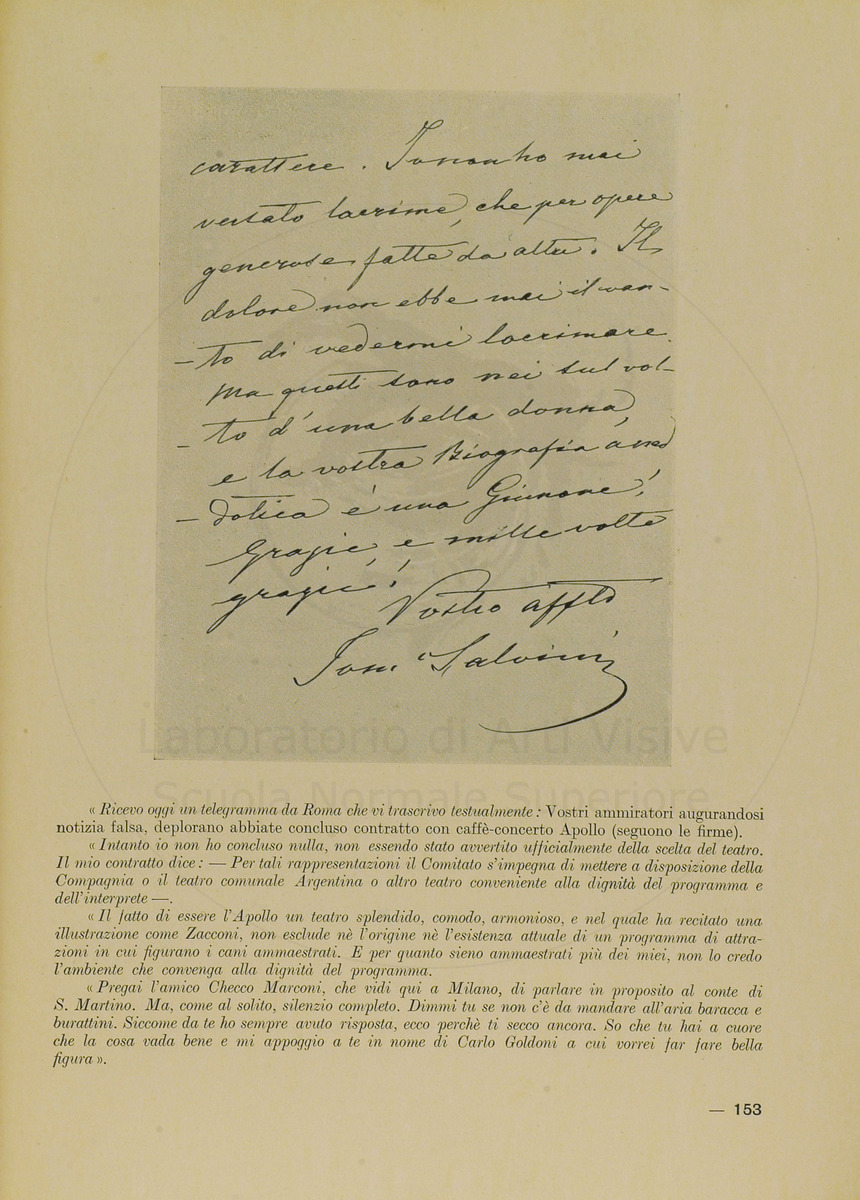 carattere. Io non ho mai
versato lacrime, che per opere
generose fatte da altri. Il
dolore non ebbe mai il van-
-to di vedermi lacrimare.
Ma questi sono nei sul vol-
-to d'una bella donna,
e la vostra Biografia aned
-dotica è una Giunone!
Grazie, e mille volte
grazie!
Vostro affto
Tom. Salvini
Laboratorio di Arti Visive
Scuola Normale Superiore
« Ricevo oggi un telegramma da Roma che vi trascrivo testualmente : Vostri ammiratori augurandosi
notizia falsa, deplorano abbiate concluso contratto con caffè-concerto Apollo (seguono le firme).
« Intanto io non ho concluso nulla, non essendo stato avvertito ufficialmente della scelta del teatro.
Il mio contratto dice : — Per tali rappresentazioni il Comitato s'impegna di mettere a disposizione della
Compagnia o il teatro comunale Argentina o altro teatro conveniente alla dignità del programma e
dell'interprete —.
« Il fatto di essere l'Apollo un teatro splendido, comodo, armonioso, e nel quale ha recitato una
illustrazione come Zacconi, non esclude nè l'origine nè l'esistenza attuale di un programma di attra-
zioni in cui figurano i cani ammaestrati. E per quanto sieno ammaestrati più dei miei, non lo credo
l'ambiente che convenga alla dignità del programma.
« Pregai l'amico Checco Marconi, che vidi qui a Milano, di parlare in proposito al conte di
S. Martino. Ma, come al solito, silenzio completo. Dimmi tu se non c'è da mandare all'aria baracca e
burattini. Siccome da te ho sempre avuto risposta, ecco perchè ti secco ancora. So che tu hai a cuore
che la cosa vada bene e mi appoggio a te in nome di Carlo Goldoni a cui vorrei far fare bella
figura ».
— 153